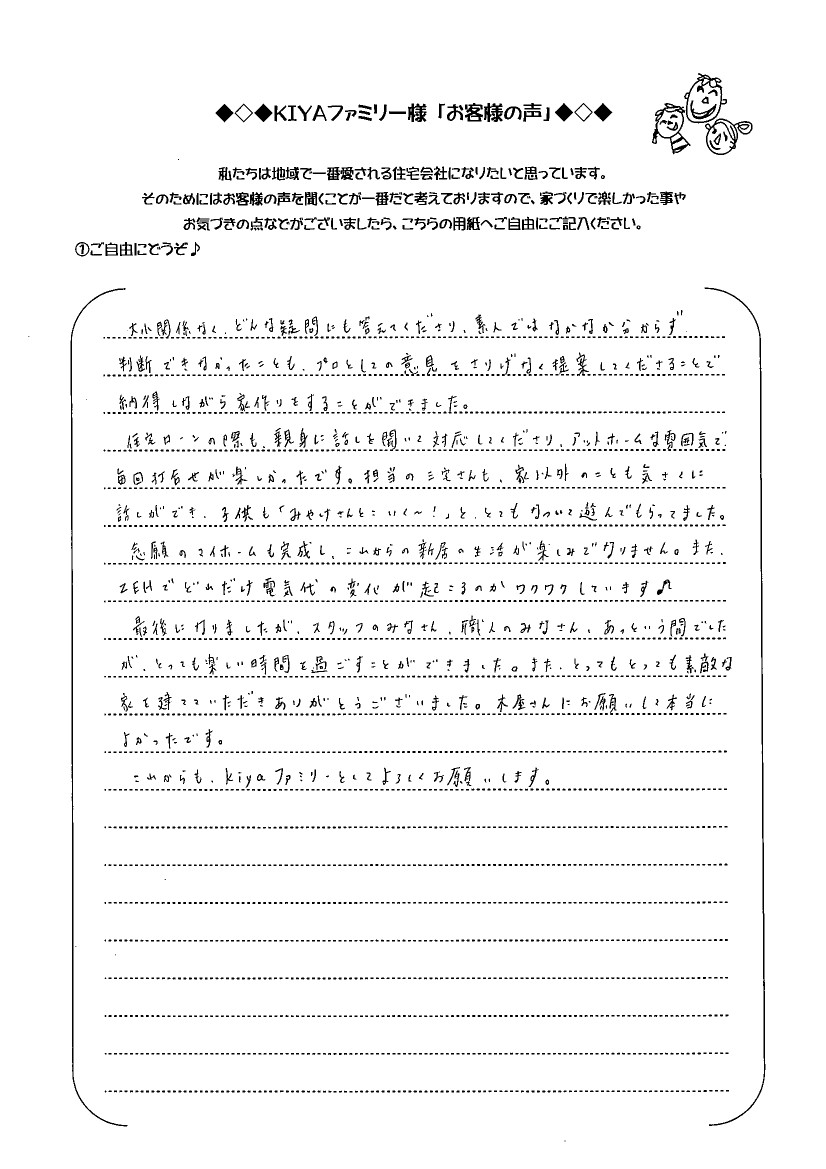 ◆◇◆KIYAファミリー様「お客様の声」◆◇◆
私たちは地域で一番愛される住宅会社になりたいと思っています。
そのためにはお客様の声を聞くことが一番だと考えておりますので、家づくりで楽しかった事や
お気づきの点などがございましたら、こちらの用紙へご自由にご記入ください。
①ご自由にどうぞ♪
大小関係なく、どんな疑問にも答えてくださり、素人ではなかなか分からず
判断できなかったことも、プロとしての意見をさりげなく提案してくださることで
納得しながら家作りをすることができました。
住宅ローンの際も、親身に話しを聞いて対応してくださり、アットホームな雰囲気で、
毎回打合せが楽しかったです。担当の三宅さんも、家以外のことも気さくに
話しができ、子供も「みやけさんとこいく～！」と、とてもなついて遊んでもらってました。
念願のマイホームも完成し、これからの新居の生活が楽しみでなりません。また、
ZEHでどれだけ電気代の変化が起こるのかワクワクしています♪
最後になりましたが、スタッフのみなさん、職人のみなさん、あっという間でした
が、とっても楽しい時間を過ごすことができました。また、とってもとっても素敵な
家を建てていただきありがとうございました。木屋さんにお願いして本当に
よかったです。
これからも、kiyaファミリーとしてよろしくお願いします。